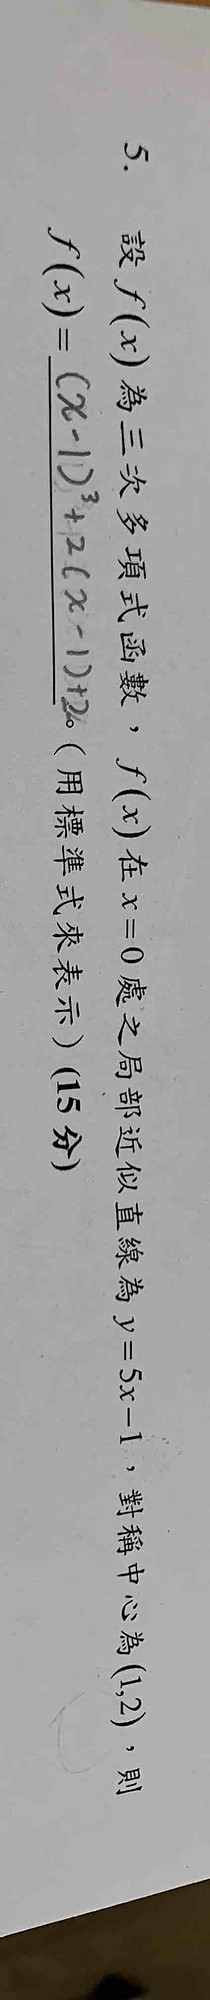 5. 設 f(x) 為三次多項式函數，f(x) 在 x=0 處之局部近似直線為 y=5x-1，對稱中心為(1,2)，則
f(x)= (x-1)³+2(x-1)+2。(用標準式來表示)(15分)